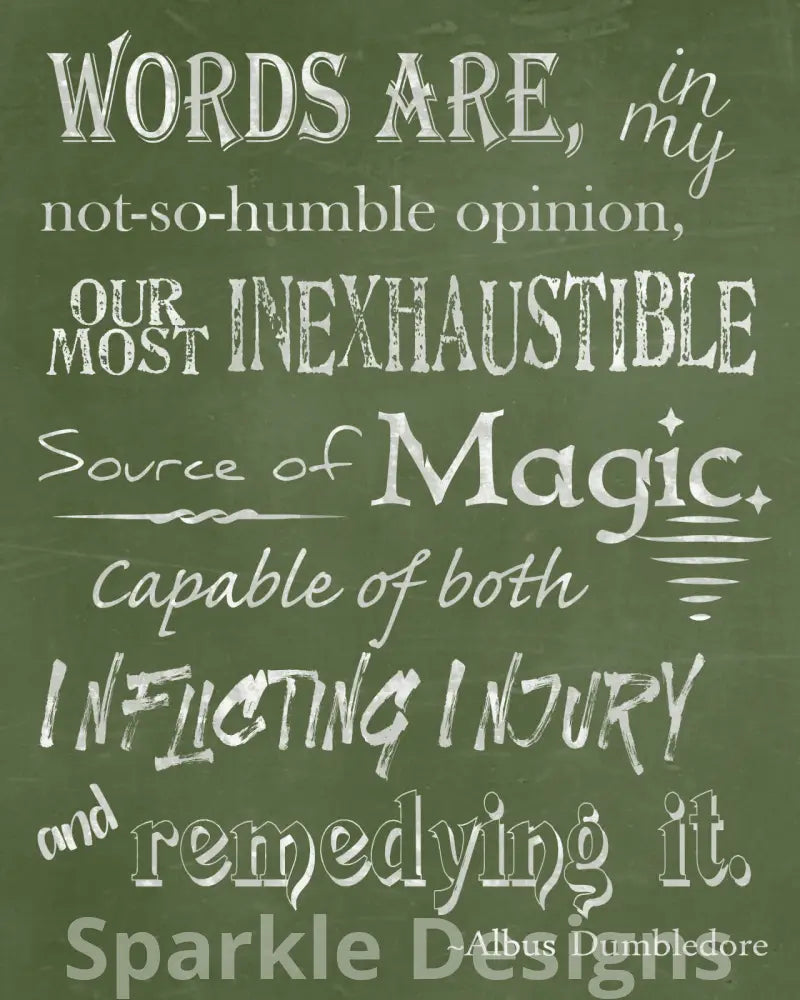 WORDS ARE, in my
not-so-humble opinion,
OUR MOST INEXHAUSTIBLE
Source of Magic.
Capable of both
INFLICTING INJURY
and remedying it.
~Albus Dumbledore
Sparkle Designs